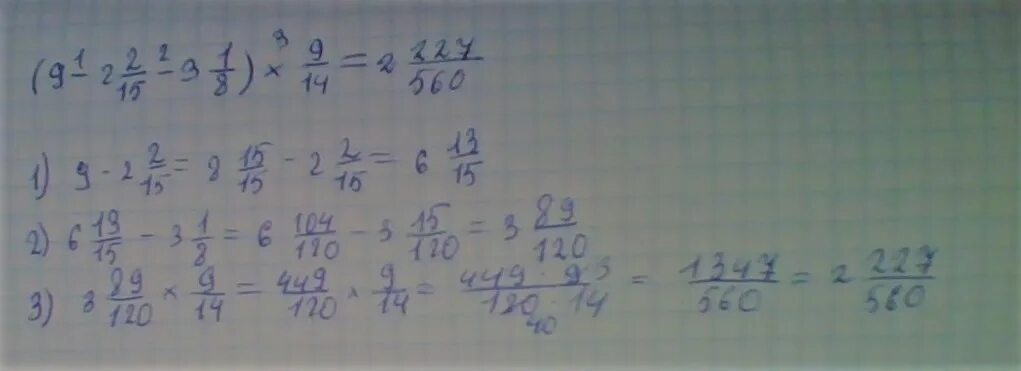 (9 -¹ 2 2/15 -² 3 1/8) ×³ 9/14 = 2 227/560
1) 9 - 2 2/15 = 8 15/15 - 2 2/15 = 6 13/15
2) 6 13/15 - 3 1/8 = 6 104/120 - 3 15/120 = 3 89/120
3) 3 89/120 × 9/14 = 449/120 × 9/14 = 449 · 9 3/120 · 14 40 = 1347/560 = 2 227/560